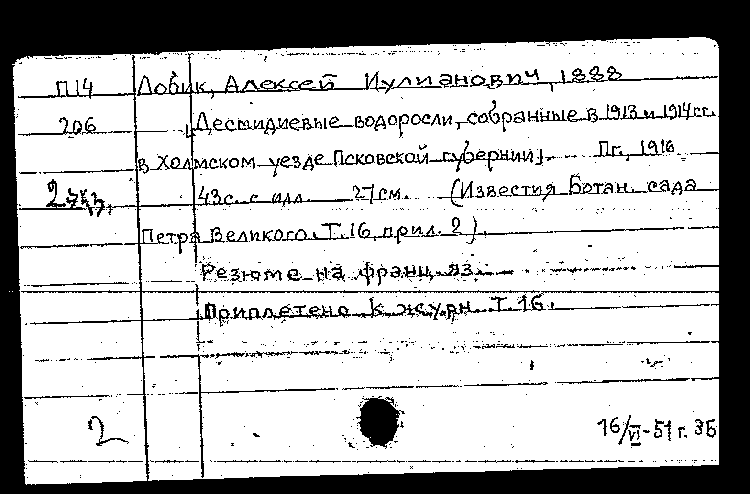 П14 Лобик, Алексей Иулианович, 1888
206 Десмидиевые водоросли, собранные в 1913 и 1914 гг.
в Холмском уезде Псковской губернии]. Пг., 1916
43 с. с илл. 27 см. (Известия Ботан. сада
Петра Великого. Т. 16, прил. 2).
Резюме на франц. яз.
Приплетено к журн. Т. 16.
2
16/VI-51 г. ЗБ